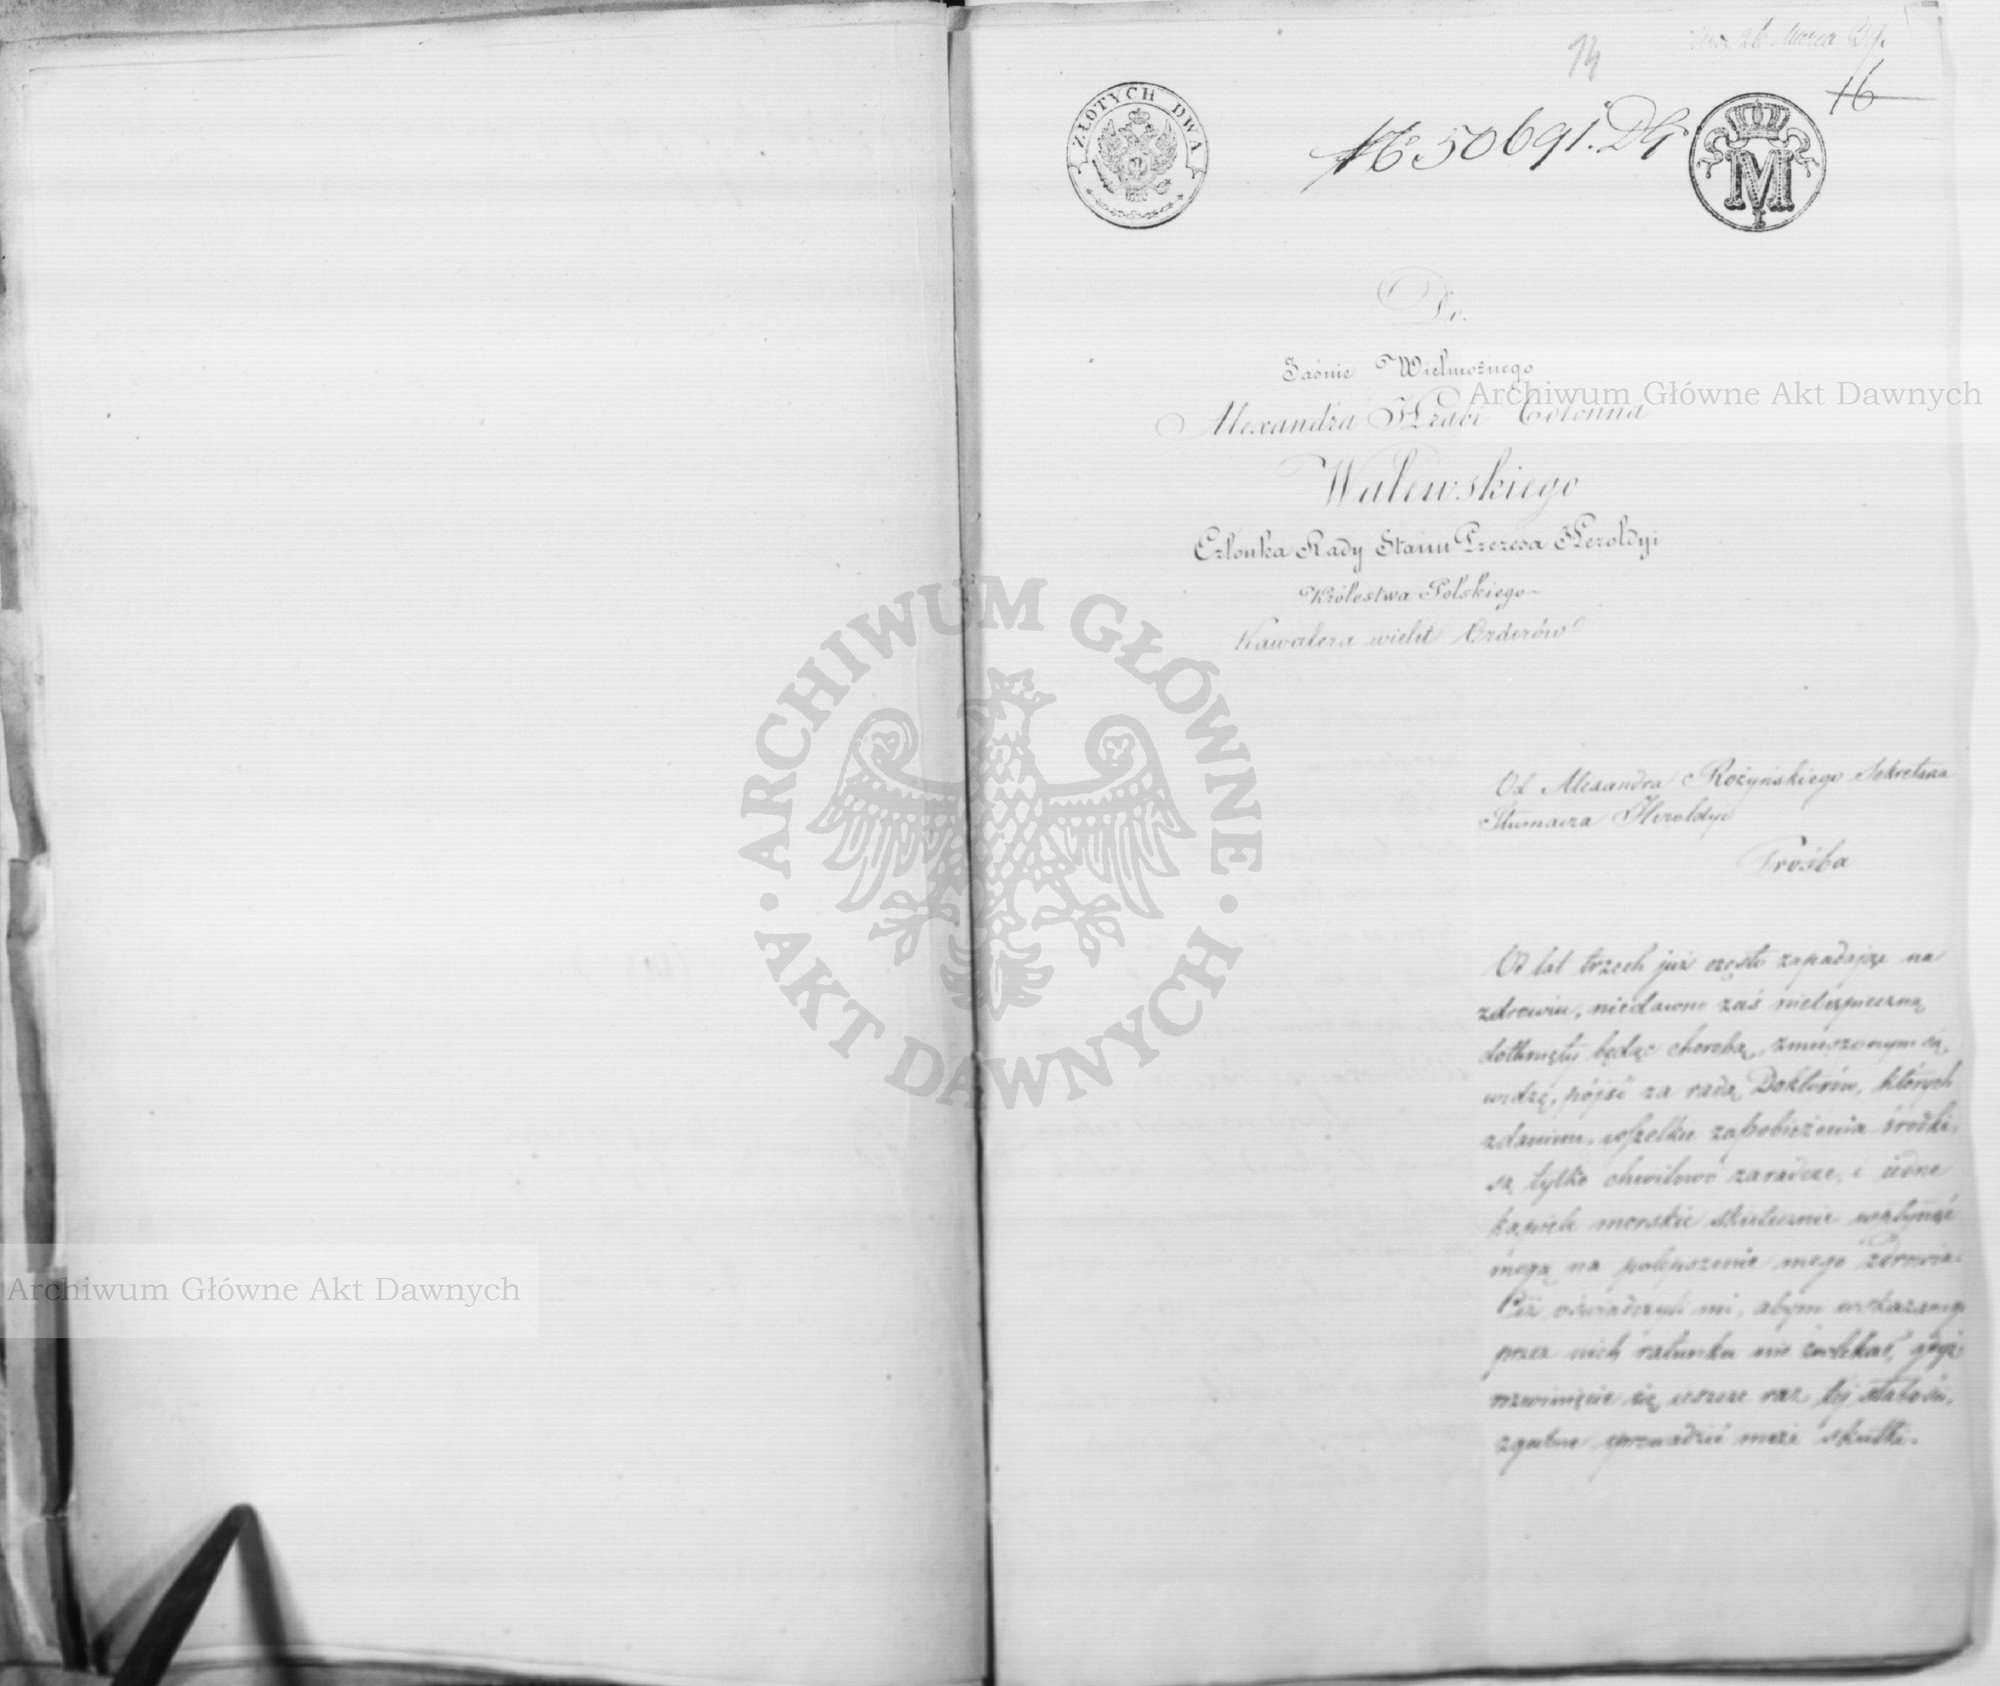 14
26 Marca
16
ZŁOTYCH DWA
№ 50691. DG
M
Do.
Jaśnie Wielmożnego
Alexandra Hrabi Colonna
Walewskiego
Członka Rady Stanu Prezesa Heroldyi
Królestwa Polskiego
Kawalera wielu Orderów
Od Alexandra Rożyńskiego Sekretarza
Tłumacza Heroldyi
Prośba
Od lat trzech już często zapadając na
zdrowiu, niedawno zaś niebezpieczną
dotknięty będąc chorobą, zmuszonym się
widzę, pójść za radą Doktorów, których
zdaniem, wszelkie zapobieżenia środki,
są tylko chwilowo zaradcze, i jedne
kąpiele morskie skutecznie wpłynąć
mogą na polepszenie mego zdrowia.
Ciż oświadczyli mi, abym wskazanego
przez nich ratunku nie zwlekał, gdyż
rozwinięcie się jeszcze raz tej słabości,
zgubne sprowadzić może skutki.
Archiwum Główne Akt Dawnych
ARCHIWUM GŁÓWNE AKT DAWNYCH
Archiwum Główne Akt Dawnych